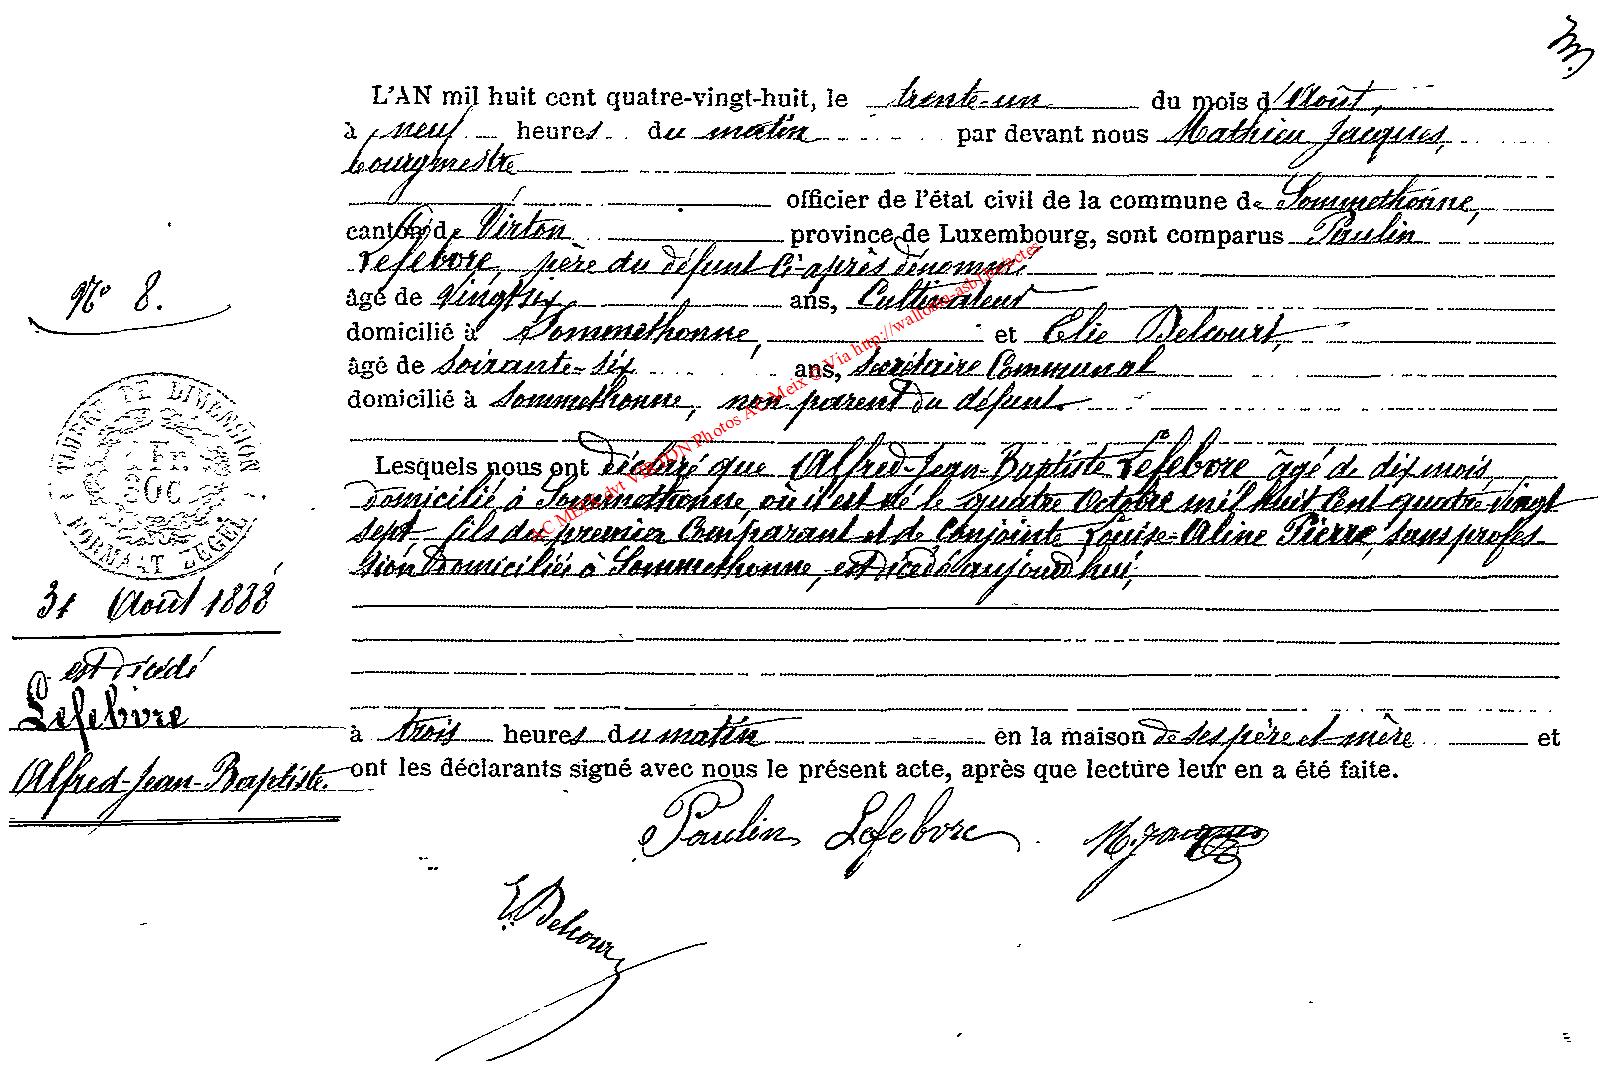 L'AN mil huit cent quatre-vingt-huit, le trente-un du mois d'Août,
à neuf heures du matin par devant nous Mathieu Jacques,
bourgmestre
officier de l'état civil de la commune de Sommethonne,
canton de Virton province de Luxembourg, sont comparus Paulin
Lefebvre, père du défunt ci-après dénommé,
âgé de vingtsix ans, Cultivateur
domicilié à Sommethonne, et Elie Delcourt,
âgé de soixante-six ans, secrétaire Communal
domicilié à Sommethonne, non parent du défunt.
Lesquels nous ont déclaré que Alfred-Jean-Baptiste Lefebvre âgé de dix mois,
domicilié à Sommethonne, où il est né le quatre Octobre mil huit cent quatre vingt
sept fils du premier Comparant et de Conjointe Louise-Aline Pierre, sans profes-
sion domiciliés à Sommethonne, est décédé aujourd'hui,
à trois heures du matin en la maison de ses père et mère et
ont les déclarants signé avec nous le présent acte, après que lecture leur en a été faite.
Paulin Lefebvre M. Jacques
E. Delcour
N° 8.
TIMBRE DE DIMENSION
1 FR.
30C
FORMAAT ZEGEL
31 Août 1888
est décédé
Lefebvre
Alfred-Jean-Baptiste.
AC Meix dvt VIRTON Photos AC Meix © Via http://wallonia-asbl.be/actes